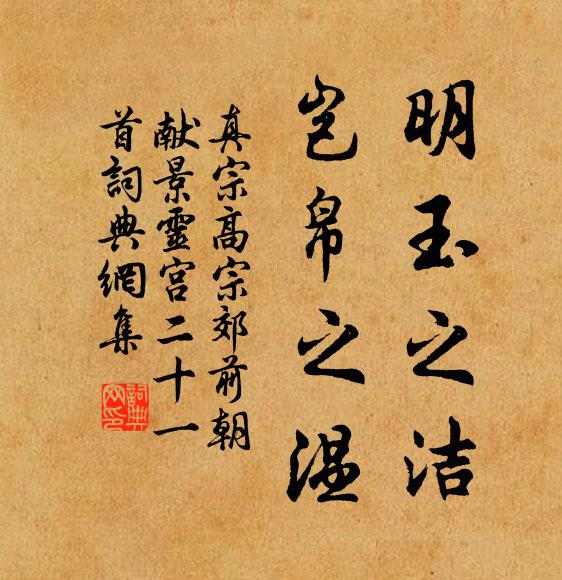 明玉之洁
岂帛之温
真宗高宗郊前朝
献景靈宫二十一
首詞典網集
詞典
网印